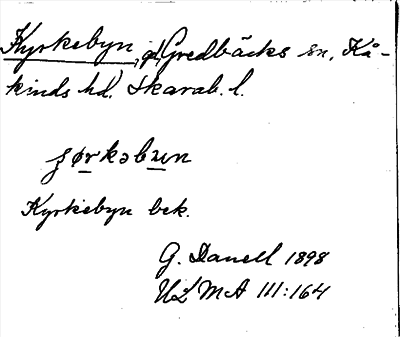 Kyrkebyn, gd, Gredbäcks sn, Kå-
kinds hd. Skarab. l.
Kyrkebyn bek.
G. Danell 1898
ULMA III:164